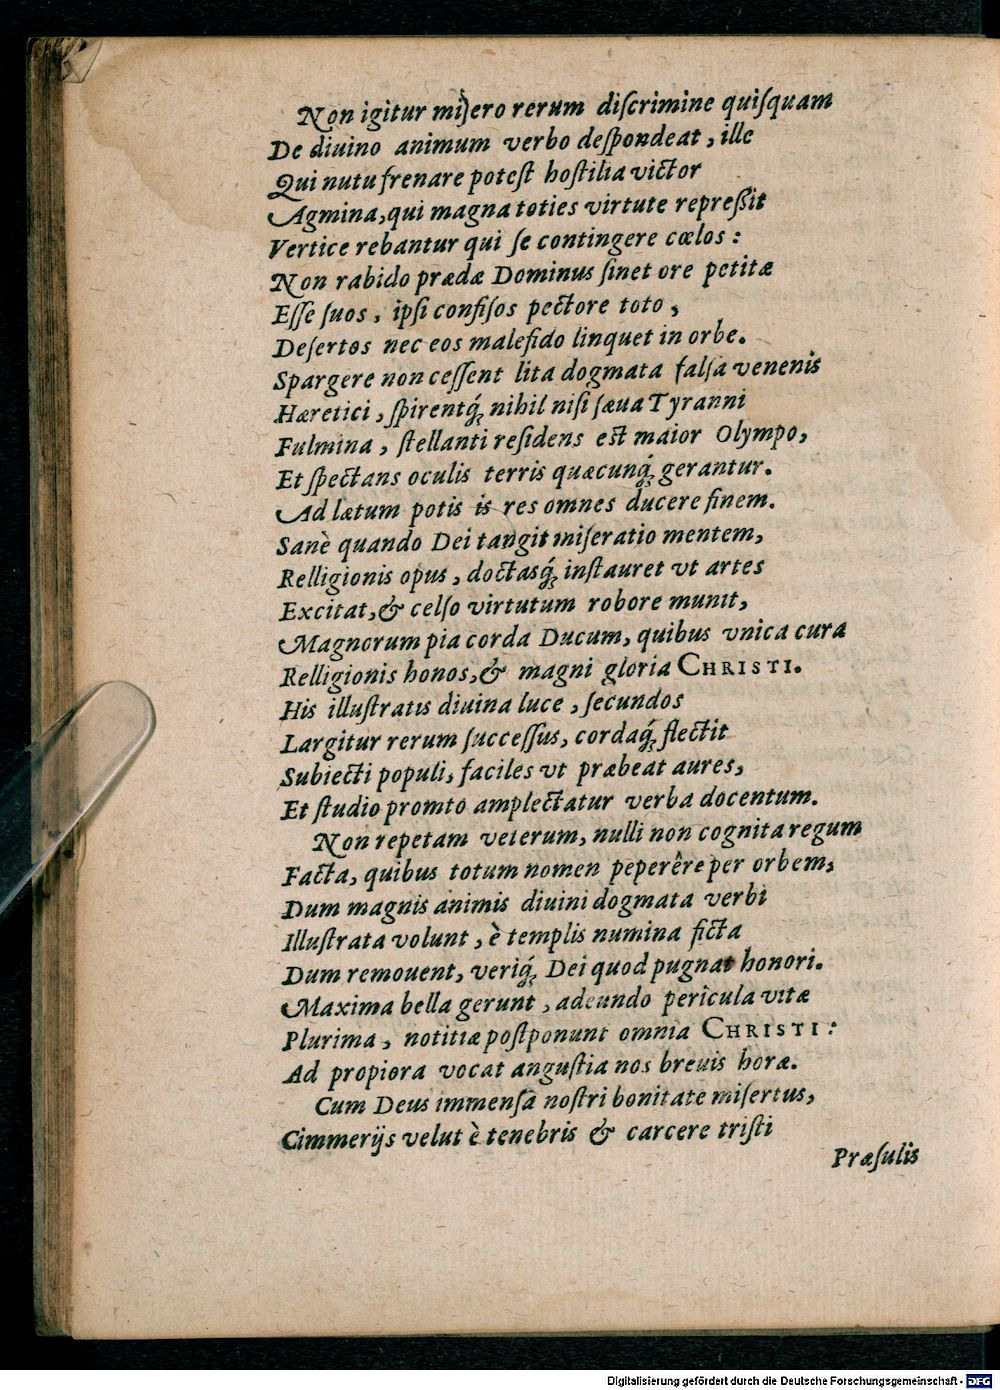 Non igitur miſero rerum diſcrimine quiſquam
De diuino animum verbo deſpondeat, ille
Qui nutu frenare poteſt hoſtilia victor
Agmina, qui magna toties virtute repreßit
Vertice rebantur qui ſe contingere cœlos:
Non rabido prædæ Dominus ſinet ore petitæ
Eſſe ſuos, ipſi confiſos pectore toto,
Deſertos nec eos malefido linquet in orbe.
Spargere non ceſſent lita dogmata falſa venenis
Hæretici, ſpirentq́ꝫ nihil niſi ſæua Tyranni
Fulmina, ſtellanti reſidens eſt maior Olympo,
Et ſpectans oculis terris quæcunq́ꝫ gerantur.
Ad lætum potis is res omnes ducere finem.
Sanè quando Dei tangit miſeratio mentem,
Relligionis opus, doctasq́ꝫ inſtauret vt artes
Excitat, & celſo virtutum robore munit,
Magnorum pia corda Ducum, quibus vnica cura
Relligionis honos, & magni gloria CHRISTI.
His illuſtratis diuina luce, ſecundos
Largitur rerum ſucceſſus, cordaq́ꝫ flectit
Subiecti populi, faciles vt præbeat aures,
Et ſtudio promto amplectatur verba docentum.
Non repetam veterum, nulli non cognita regum
Facta, quibus totum nomen peperêre per orbem,
Dum magnis animis diuini dogmata verbi
Illuſtrata volunt, è templis numina ficta
Dum remouent, veriq́ꝫ Dei quod pugnat honori.
Maxima bella gerunt, adeundo pericula vitæ
Plurima, notitiæ poſtponunt omnia CHRISTI:
Ad propiora vocat anguſtia nos breuis horæ.
Cum Deus immenſa noſtri bonitate miſertus,
Cimmerijs velut è tenebris & carcere triſti
Præſulis
Digitalisierung gefördert durch die Deutsche Forschungsgemeinschaft - DFG